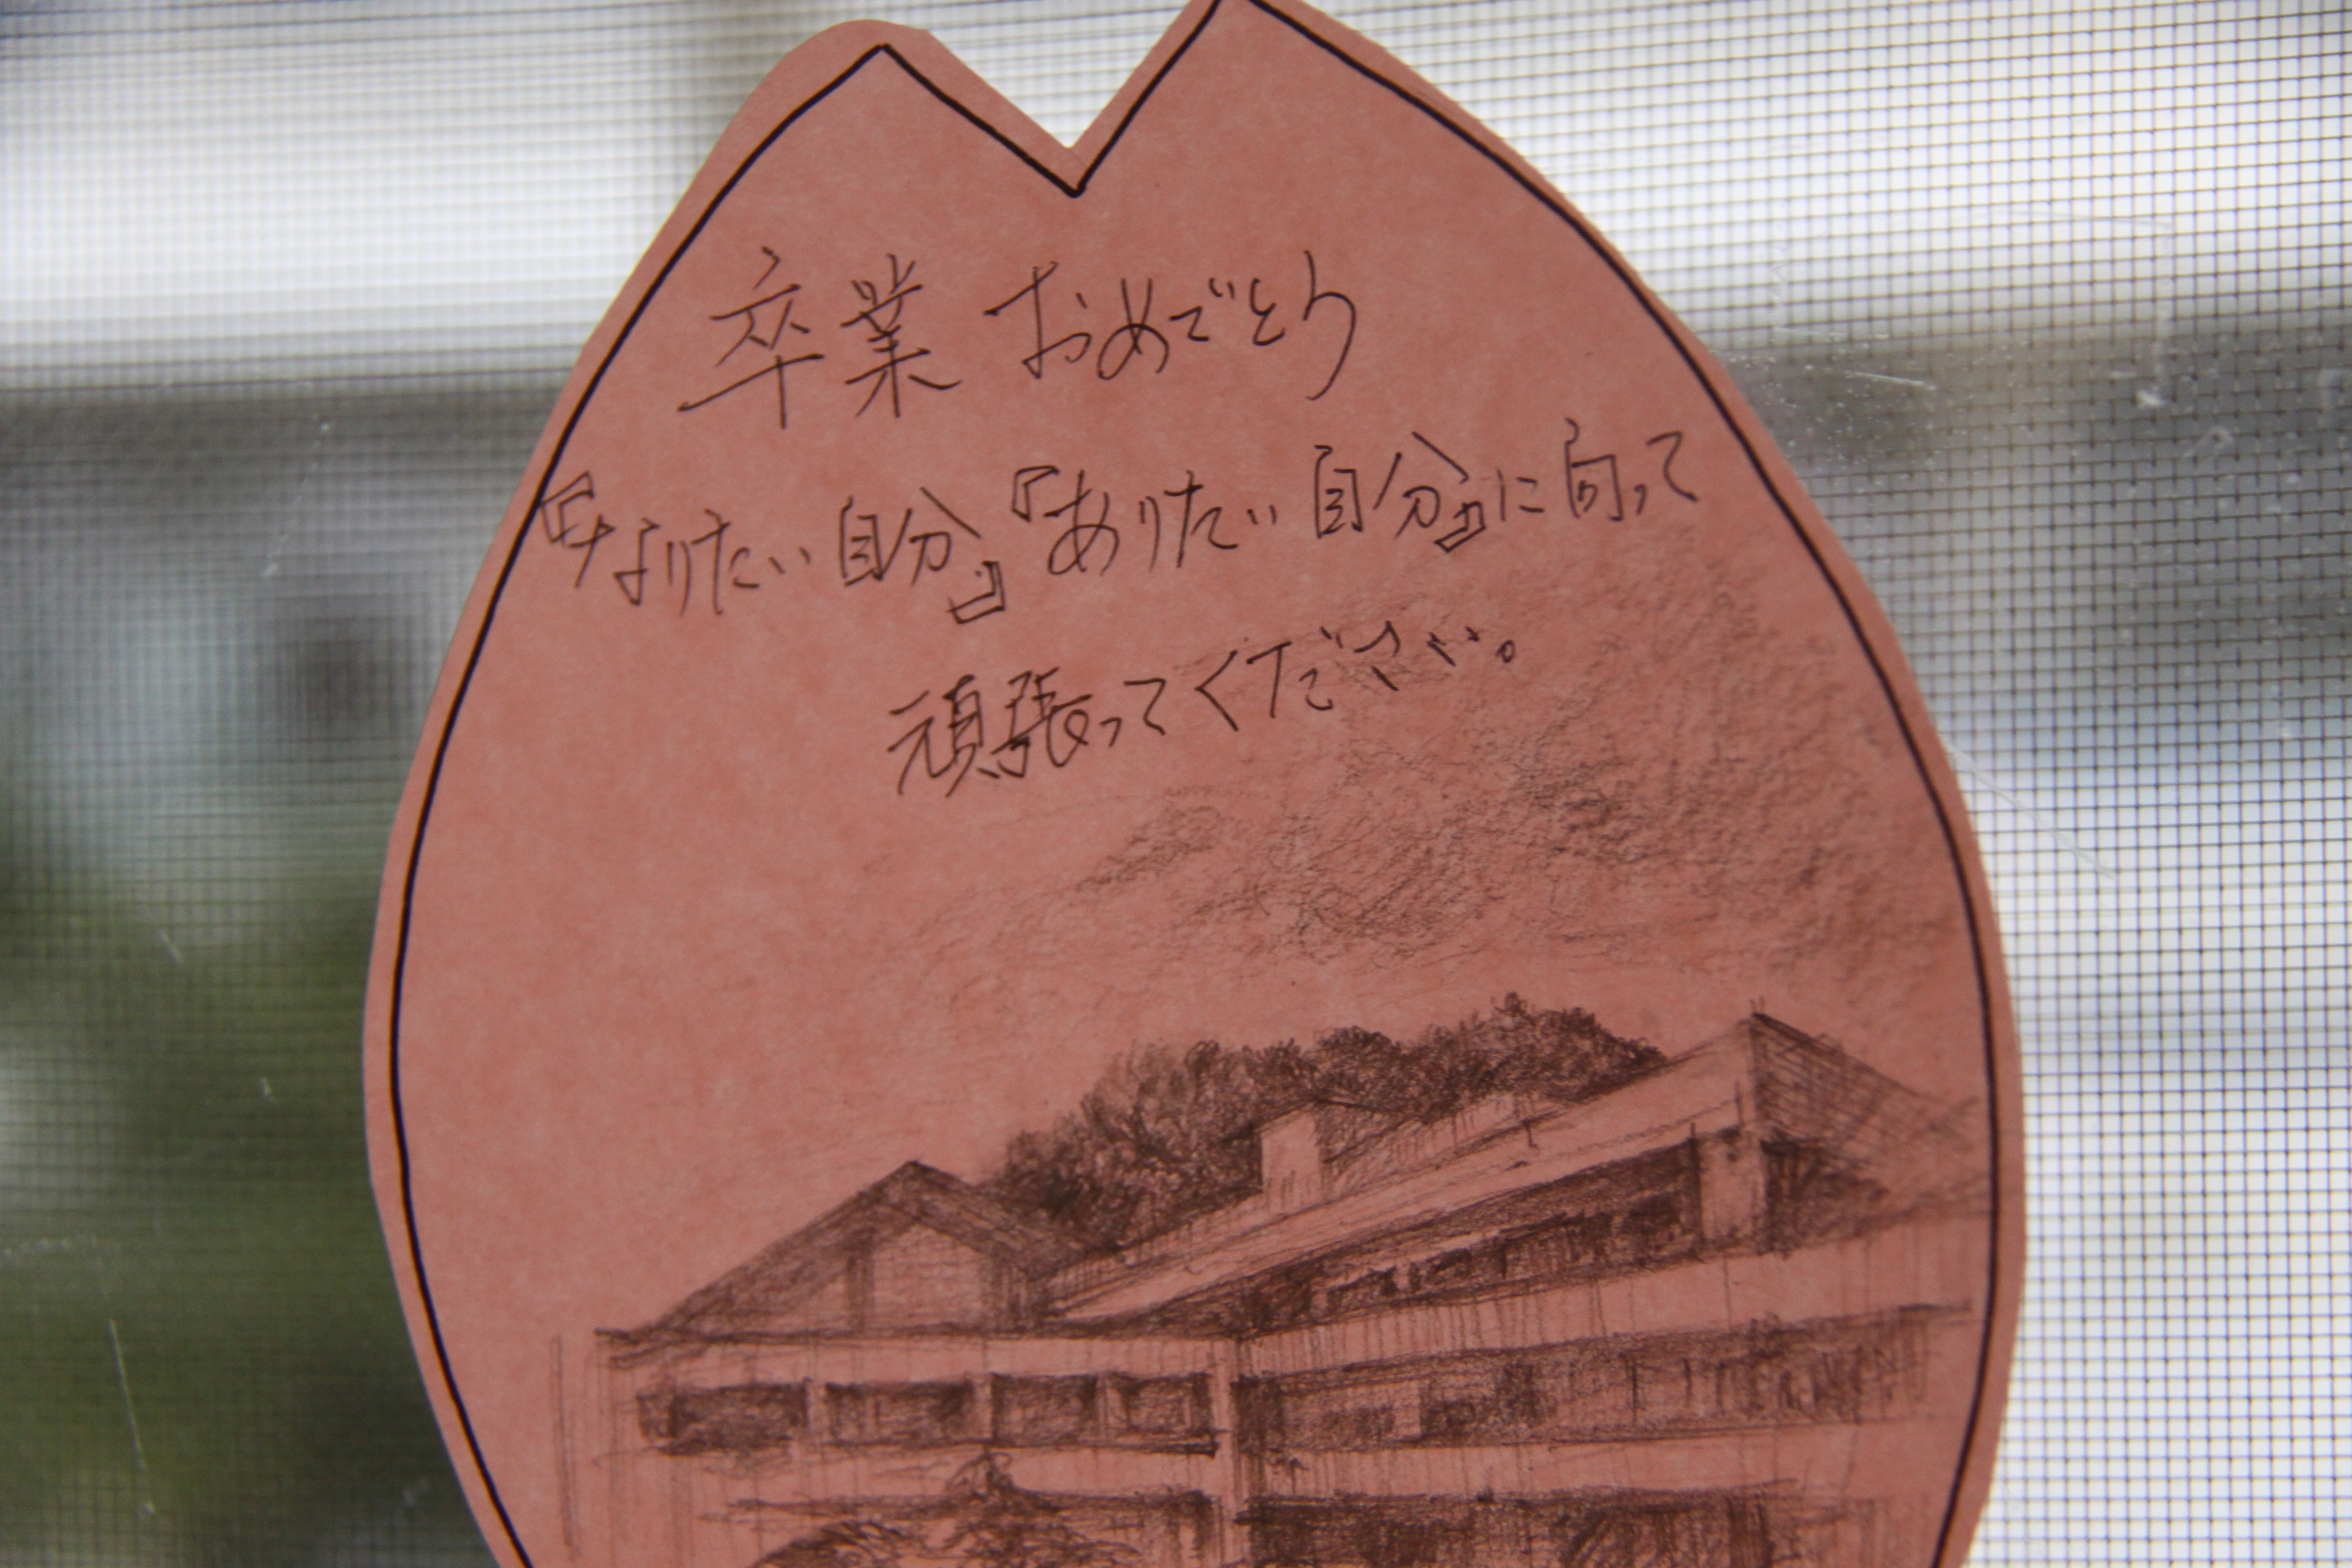 卒業 おめでとう
『なりたい自分』『ありたい自分』に向って
頑張ってください。